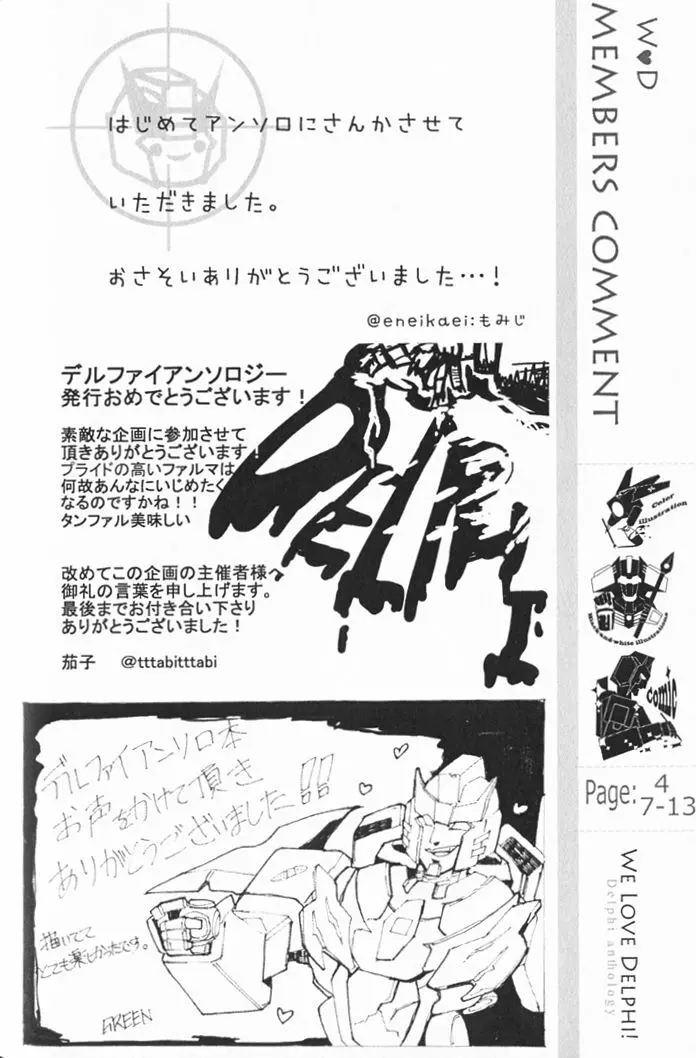 はじめてアンソロにさんかさせて
いただきました。
おさそいありがとうございました・・・！
@eneikaei:もみじ
デルファイアンソロジー
発行おめでとうございます！
素敵な企画に参加させて
頂きありがとうございます！
プライドの高いファルマは
何故あんなにいじめたく
なるのですかね！！
タンファル美味しい
改めてこの企画の主催者様へ
御礼の言葉を申し上げます。
最後までお付き合い下さり
ありがとうございました！
茄子 @tttabitttabi
デルファイアンソロ本
お声をかけて頂き
ありがとうございました!!
描いてて
とても楽しかったです。
GREEN
W♥D
MEMBERS COMMENT
Color
illustration
Black and white illustrations
comic
Page: 4
7-13
WE LOVE DELPHI!
Delphi anthology